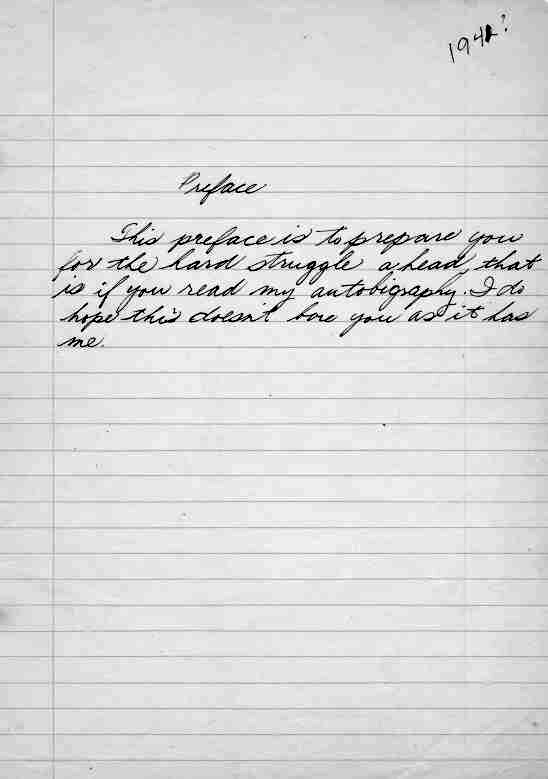 194?
Preface
This preface is to prepare you
for the hard struggle ahead, that
is if you read my autobigraphy. I do
hope this doesn't bore you as it has
me.